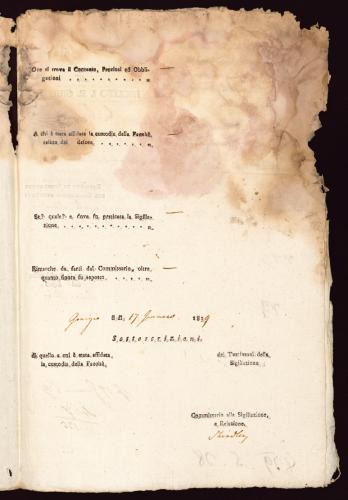 Ove si trova il Contante, Preziosi ed Obbli-
gazioni
A chi è stata affidata la custodia della Facoltà
relitta dal defonto
Se, quale, e dove fu praticata la Sigilla-
zione
Rimarche da farsi dal Commissario, oltre
quanto finora fu esposto
lì 17 Gennaro 1839
Sottoscrizioni
di quello a cui è stata affidata
la custodia della Facoltà
dei Testimonj della
Sigillazione
Commissario alla Sigillazione,
e Relazione.